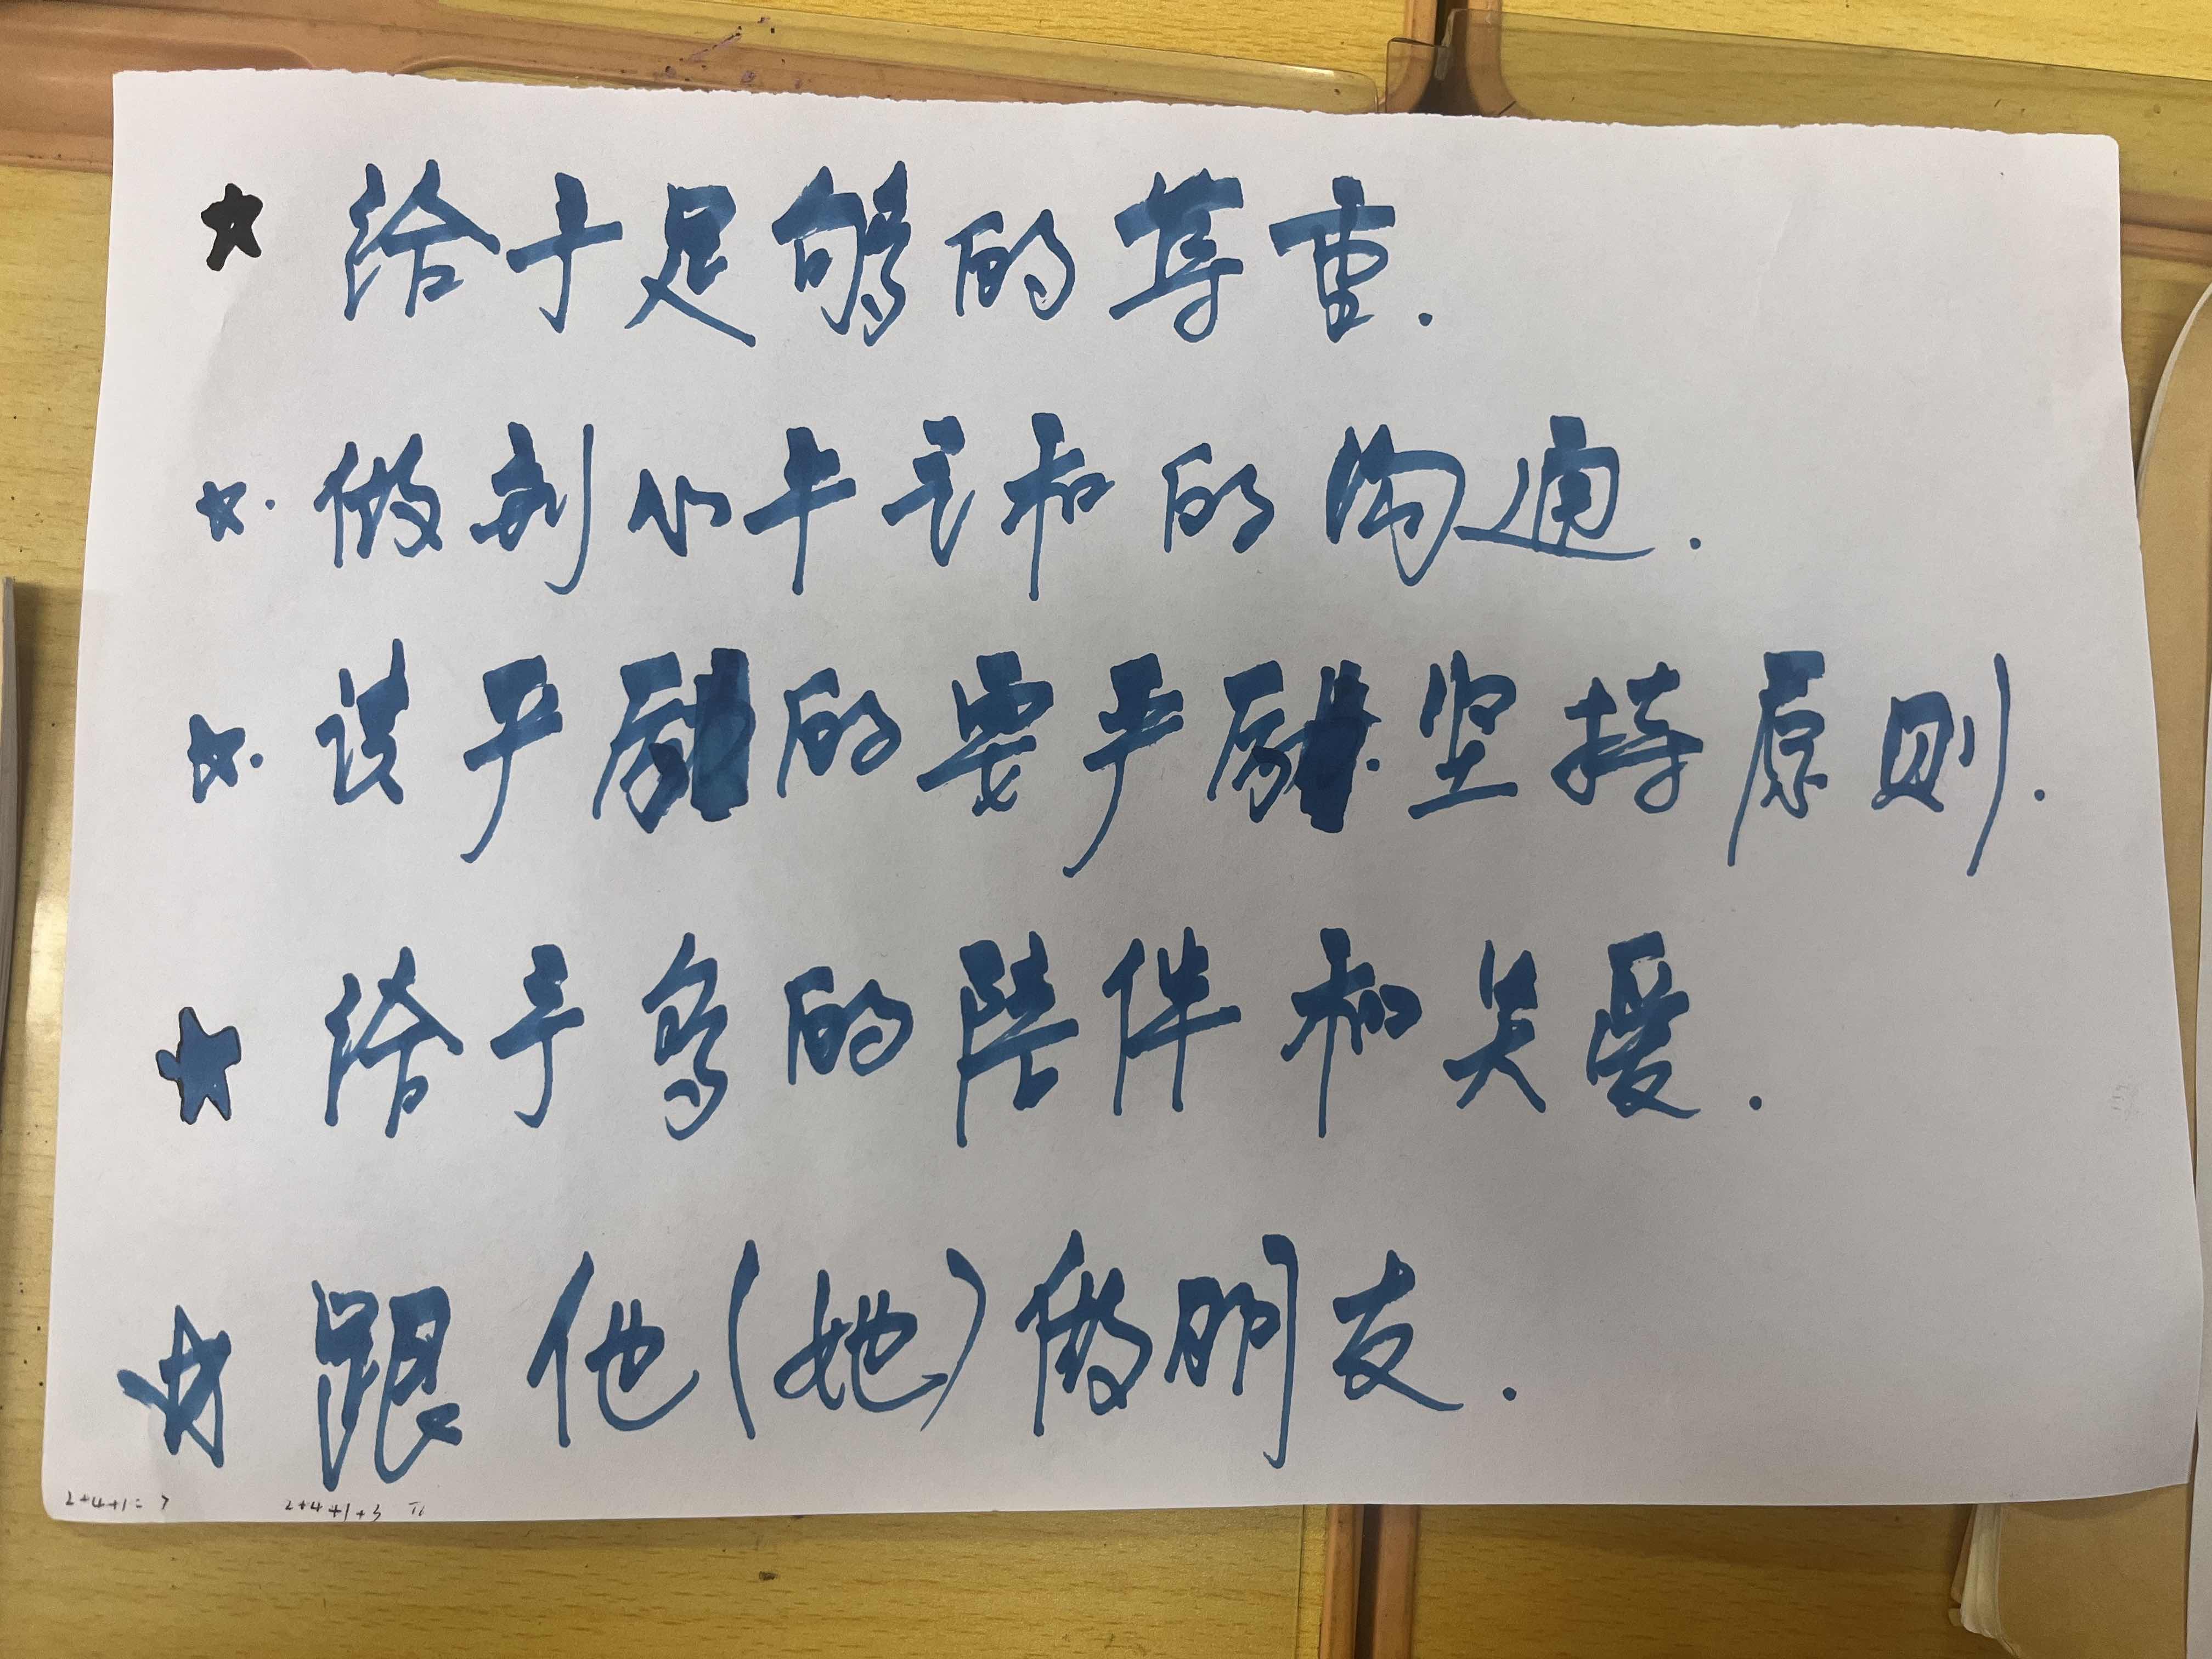 ★ 给予足够的尊重.
☆. 做到心平气和的沟通.
☆. 该严厉的要严厉.坚持原则.
★ 给予多的陪伴和关爱.
☆ 跟他(她)做朋友.
2+4+1=7 2+4+1+3